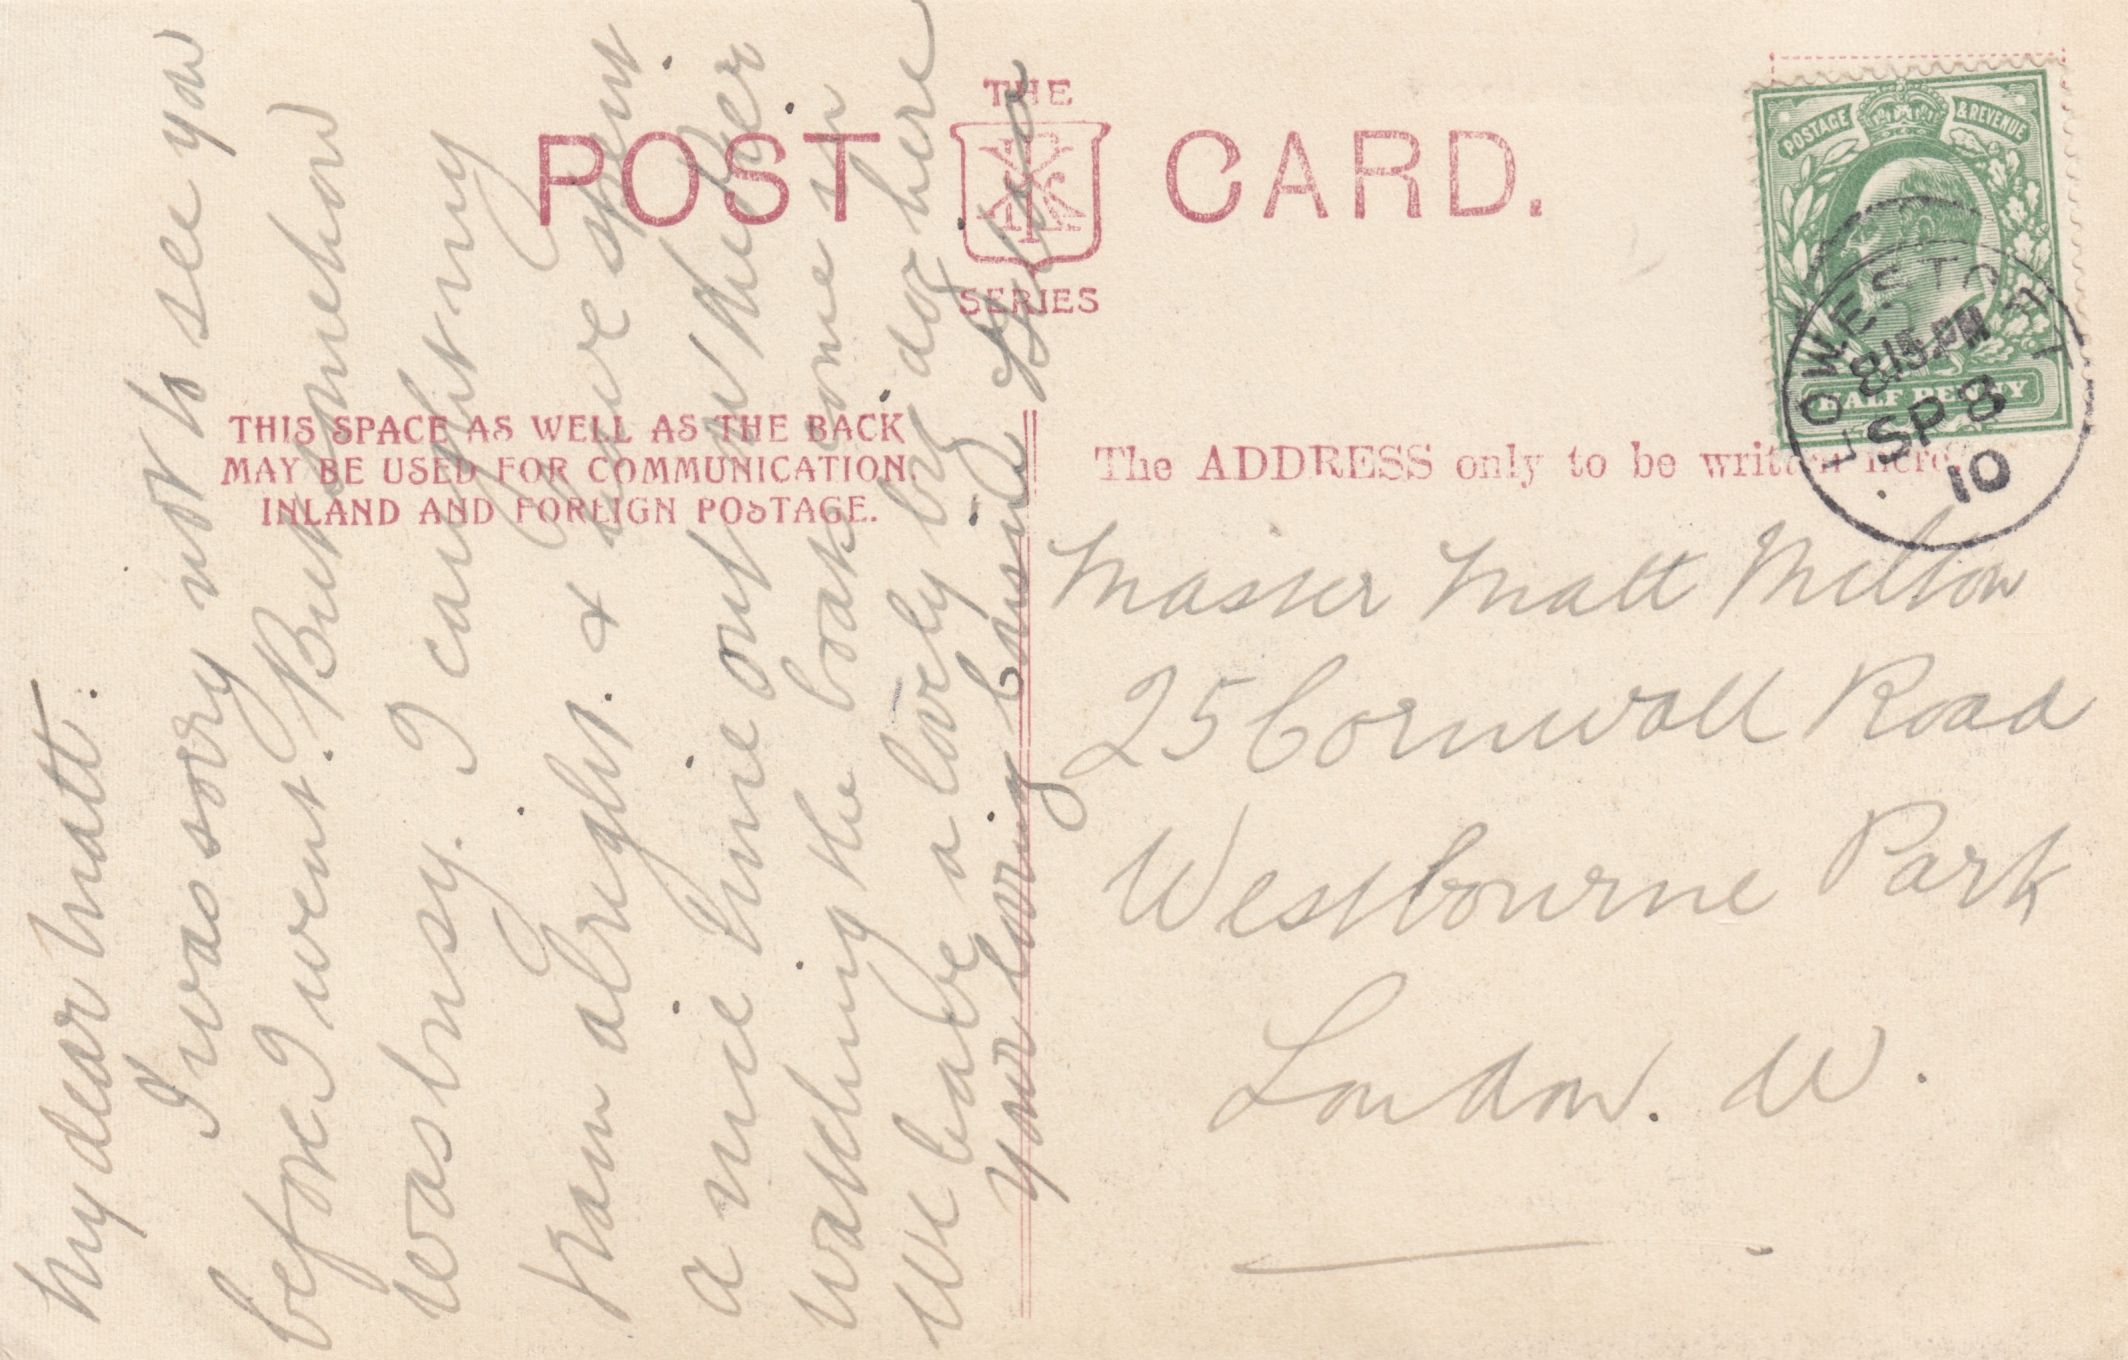 POST
THE
SERIES
CARD.
POSTAGE & REVENUE
HALF PENNY
LOWESTOFT
8.15 PM
SP 8
10
THIS SPACE AS WELL AS THE BACK
MAY BE USED FOR COMMUNICATION.
INLAND AND FOREIGN POSTAGE.
The ADDRESS only to be written here
My dear Matt.
I was sorry not to see you
before I went. But somehow
was busy. I caught my
train alright. & have spent
a nice time out in the
watching the boats come in
We have a lovely big dog here
Your loving cousin
Master Matt Milton
25 Cornwall Road
Westbourne Park
London. W.